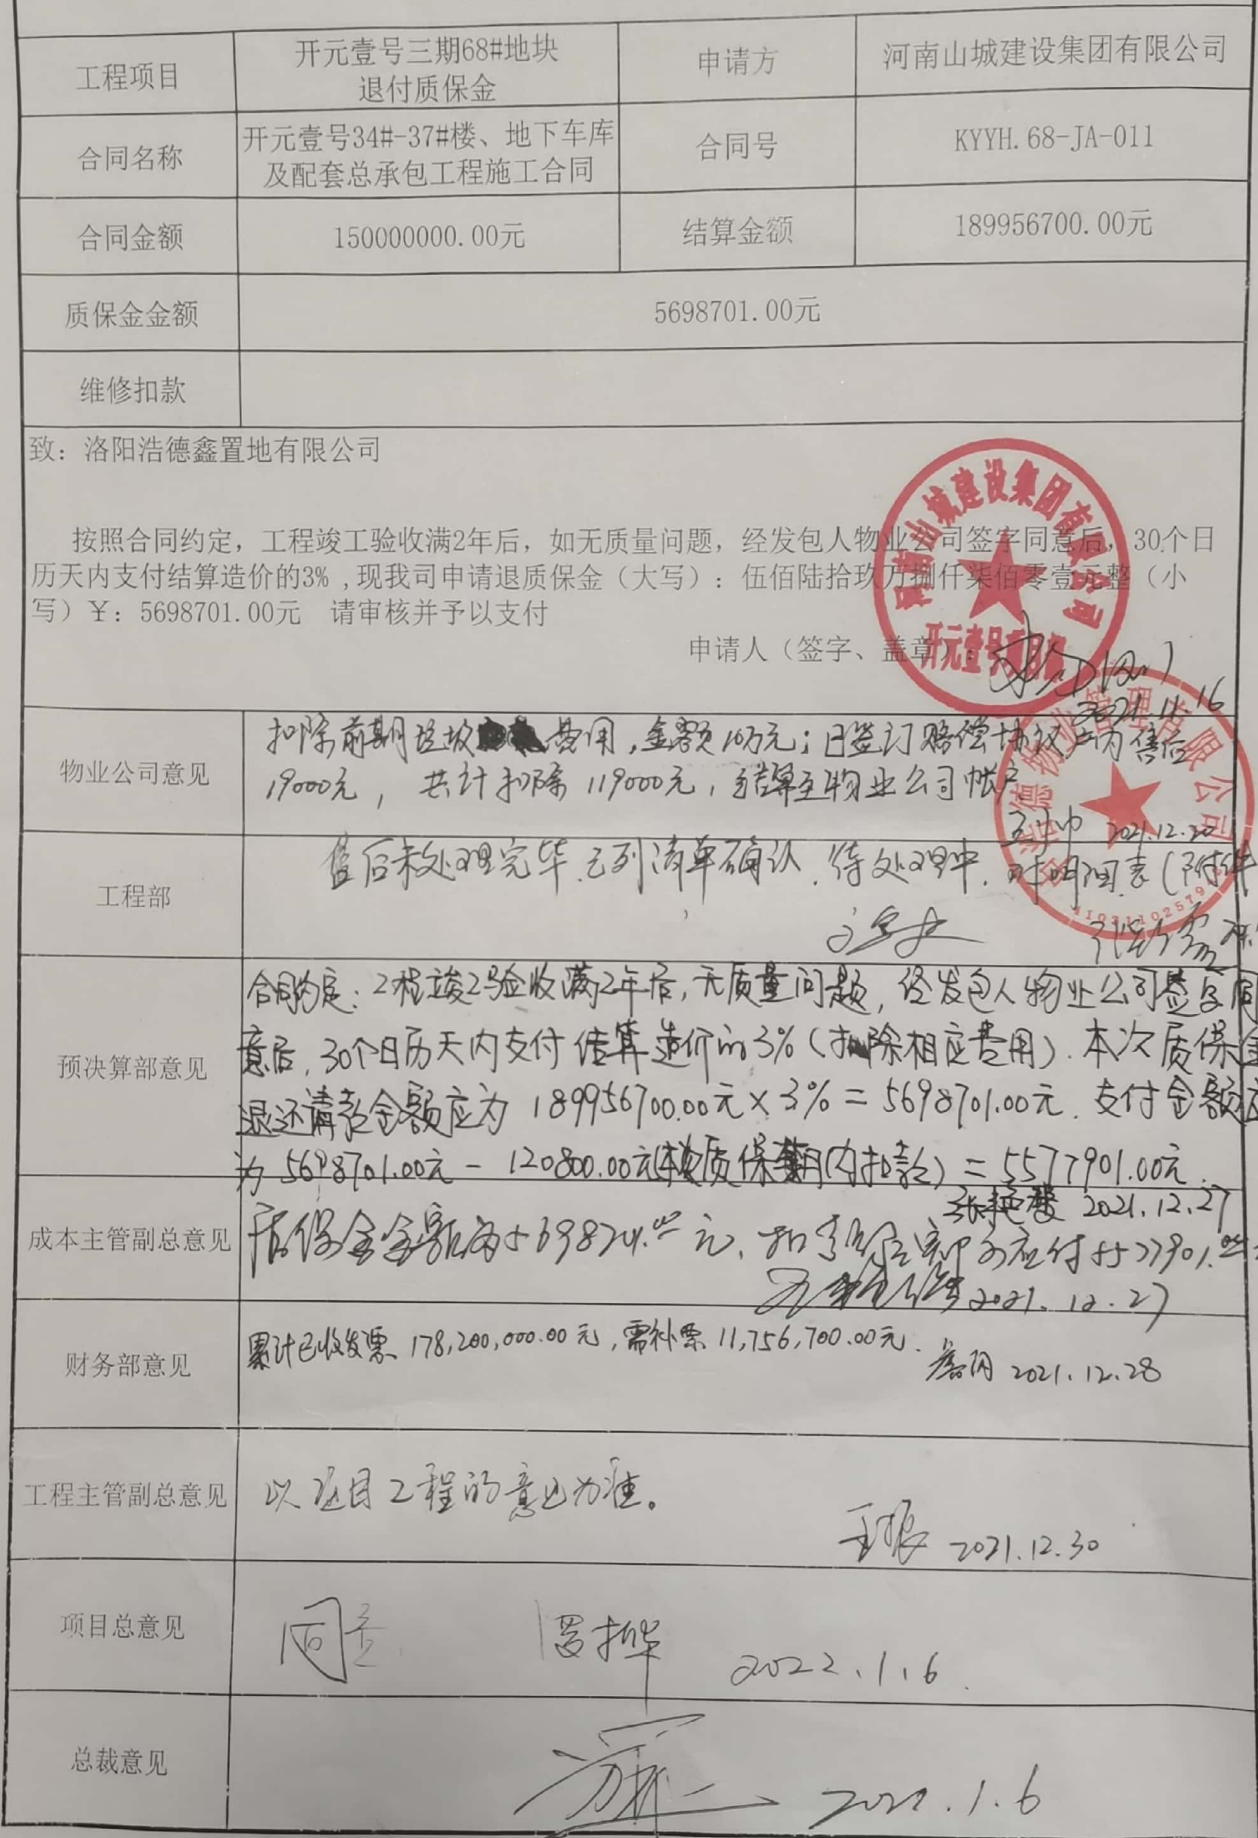 工程项目
开元壹号三期68#地块
退付质保金
申请方
河南山城建设集团有限公司
合同名称
开元壹号34#-37#楼、地下车库
及配套总承包工程施工合同
合同号
KYYH.68-JA-011
合同金额
150000000.00元
结算金额
189956700.00元
质保金金额
5698701.00元
维修扣款
致：洛阳浩德鑫置地有限公司
按照合同约定，工程竣工验收满2年后，如无质量问题，经发包人物业公司签字同意后，30个日
历天内支付结算造价的3% ,现我司申请退质保金（大写）：伍佰陆拾玖万捌仟柒佰零壹元整（小
写）￥：5698701.00元 请审核并予以支付
申请人（签字、盖章）：
河南山城建设集团有限公司
开元壹号项目部
2021.11.16
物业公司意见
扣除前期垃圾费用，金额10万元；已签订赔偿协议户内售后
19000元，共计扣除119000元，结算至物业公司帐户
2021.12.20
浩德物业管理有限公司
工程部
售后未处理完毕，已列清单确认，待处理中，附明细表（附件
预决算部意见
合同约定：工程竣工验收满2年后，无质量问题，经发包人物业公司签字同
意后，30个日历天内支付结算造价的3%（扣除相应费用）．本次质保金
退还请款金额应为189956700.00元×3%＝5698701.00元．支付金额应
为5698701.00元－120800.00元（质保期内扣款）＝5577901.00元
张艳 2021.12.27
成本主管副总意见
质保金金额为5698701.00元，扣 应付5577901.00
2021.12.27
财务部意见
累计已收发票 178,200,000.00元，需补票 11,756,700.00元．
2021.12.28
工程主管副总意见
以项目工程的意见为准。
王振 2021.12.30
项目总意见
同意
2022.1.6
总裁意见
2022.1.6